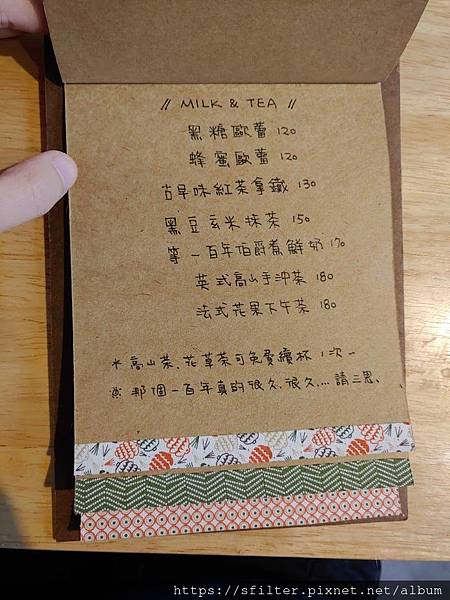 // MILK & TEA //
黑糖歐蕾 120
蜂蜜歐蕾 120
古早味紅茶拿鐵 130
黑豆玄米抹茶 150
等一百年伯爵煮鮮奶 170
英式高山手沖茶 180
法式花果下午茶 180
* 高山茶、花草茶可免費續杯 1 次 -
※ 那個一百年真的很久、很久....請三思、
https://sfilter.pixnet.net/album